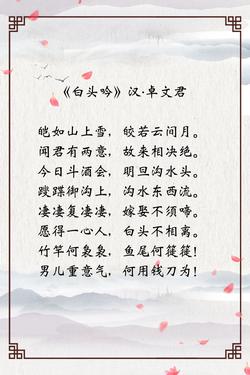 《白头吟》汉·卓文君
皑如山上雪，皎若云间月。
闻君有两意，故来相决绝。
今日斗酒会，明旦沟水头。
躞蹀御沟上，沟水东西流。
凄凄复凄凄，嫁娶不须啼。
愿得一心人，白头不相离。
竹竿何袅袅，鱼尾何簁簁！
男儿重意气，何用钱刀为！